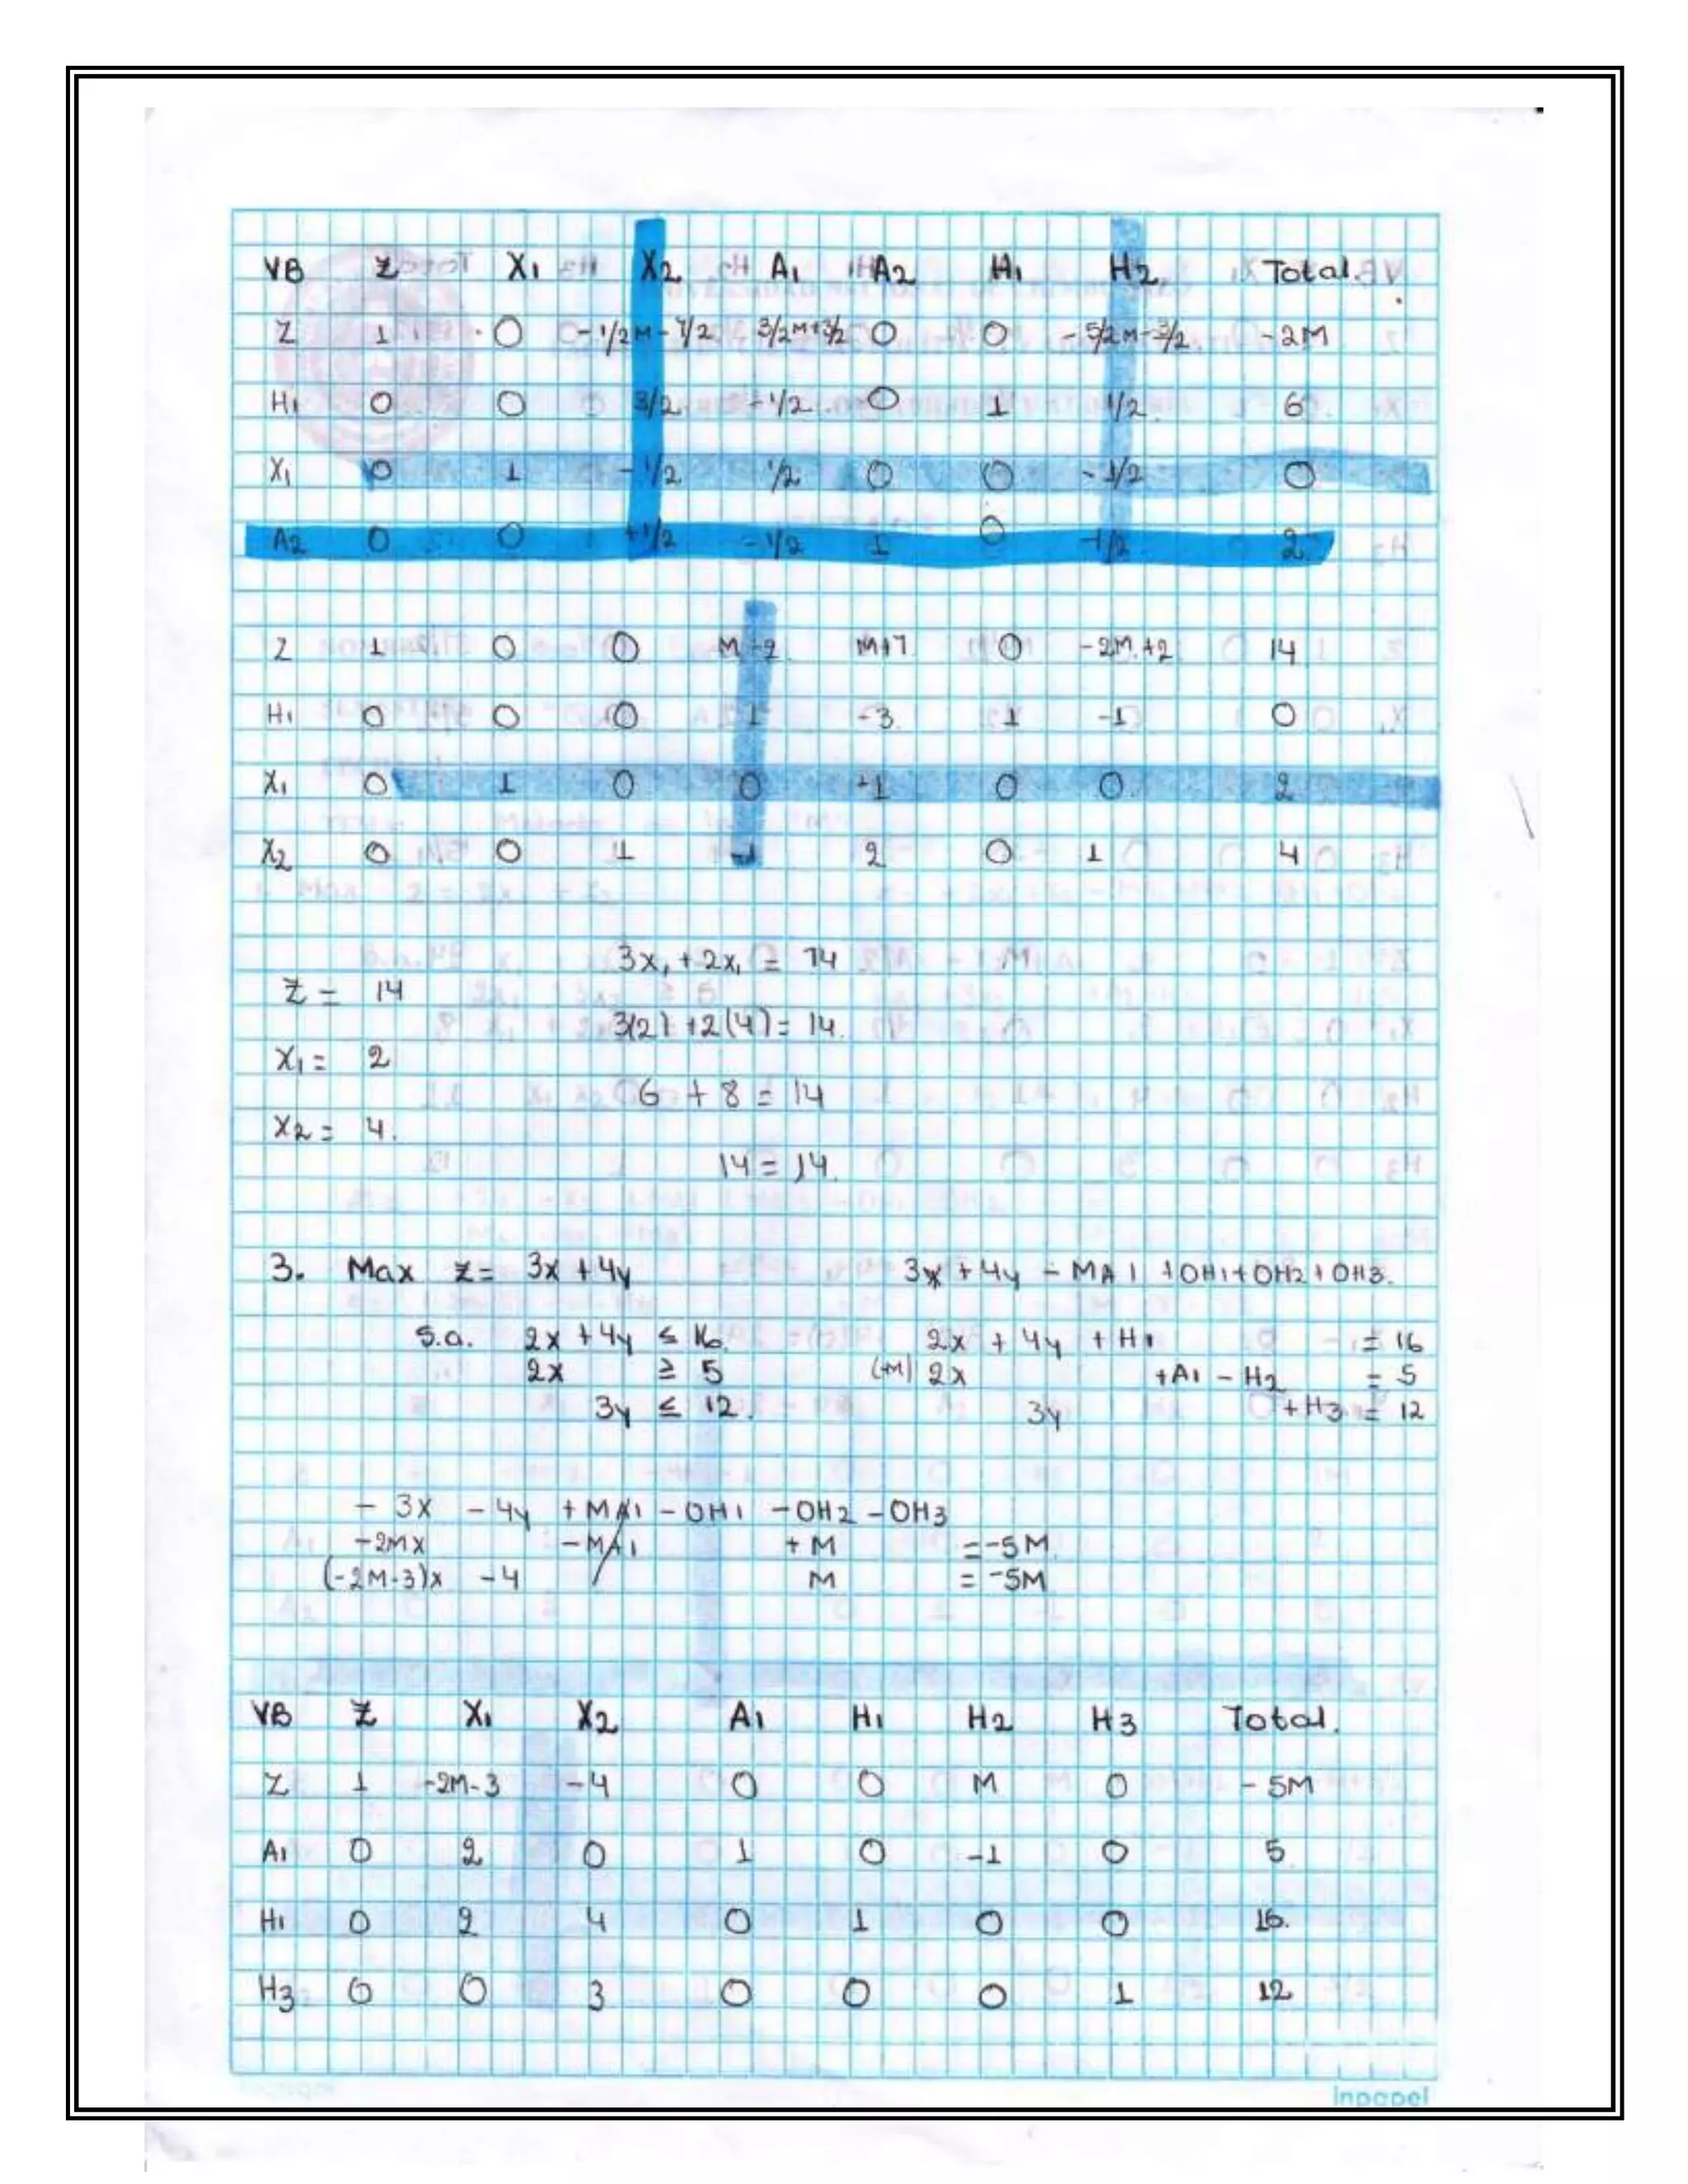 VB Z X1 X2 A1 A2 H1 H2 Total.
Z 1 0 -1/2M-7/2 3/2M+3/2 0 0 -5/2M-3/2 -2M
H1 0 0 3/2 -1/2 0 1 1/2 6
X1 0 1 -1/2 1/2 0 0 -1/2 0
A2 0 0 +1/2 -1/2 1 0 2
Z 1 0 0 M-2 M+7 0 -2M+2 14
H1 0 0 0 1 -3 1 -1 0
X1 0 1 0 0 +1 0 0 2
X2 0 0 1 -1 2 0 1 4
3x1 + 2x1 = 14
Z = 14
3(2) + 2(4) = 14.
X1 = 2
6 + 8 = 14
X2 = 4.
14 = 14.
3. Max Z= 3x + 4y 3x + 4y - MA1 + OH1 + OH2 + OH3.
S.a. 2x + 4y ≤ 16. 2x + 4y + H1 = 16
2x ≥ 5 (-M) 2x + A1 - H2 = 5
3y ≤ 12. 3y + H3 = 12
- 3x - 4y + MA1 - OH1 - OH2 - OH3
-2Mx - MA1 + M = -5M
(-2M-3)x -4 M = -5M
VB Z X1 X2 A1 H1 H2 H3 Total.
Z 1 -2M-3 -4 0 0 M 0 -5M
A1 0 2 0 1 0 -1 0 5
H1 0 2 4 0 1 0 0 16.
H3 0 0 3 0 0 0 1 12
inpapel